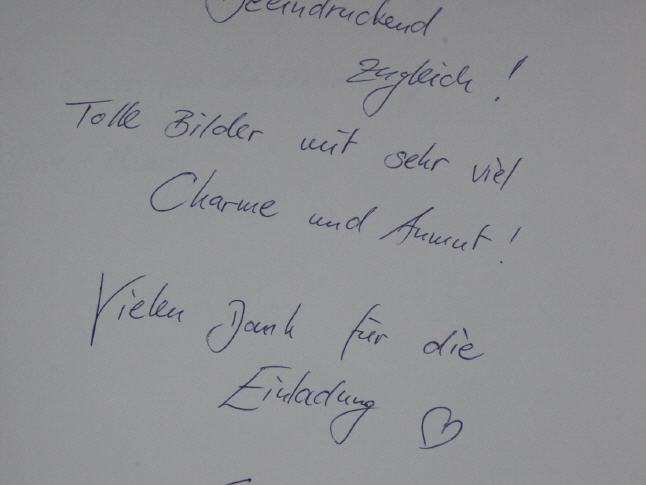 Beeindruckend
zugleich!
Tolle Bilder mit sehr viel
Charme und Anmut!
Vielen Dank für die
Einladung ♡